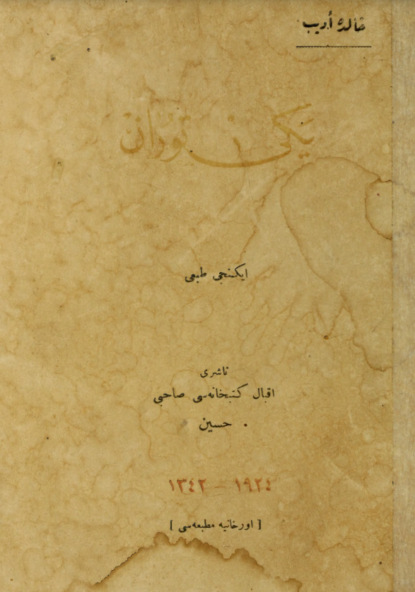 خالده أديب
يكى توران
ايكنجى طبعى
ناشرى
اقبال كتبخانه‌سى صاحبى
حسين
١٣٤٢ – ١٩٢٤
[ اورخانيه مطبعه‌سى ]